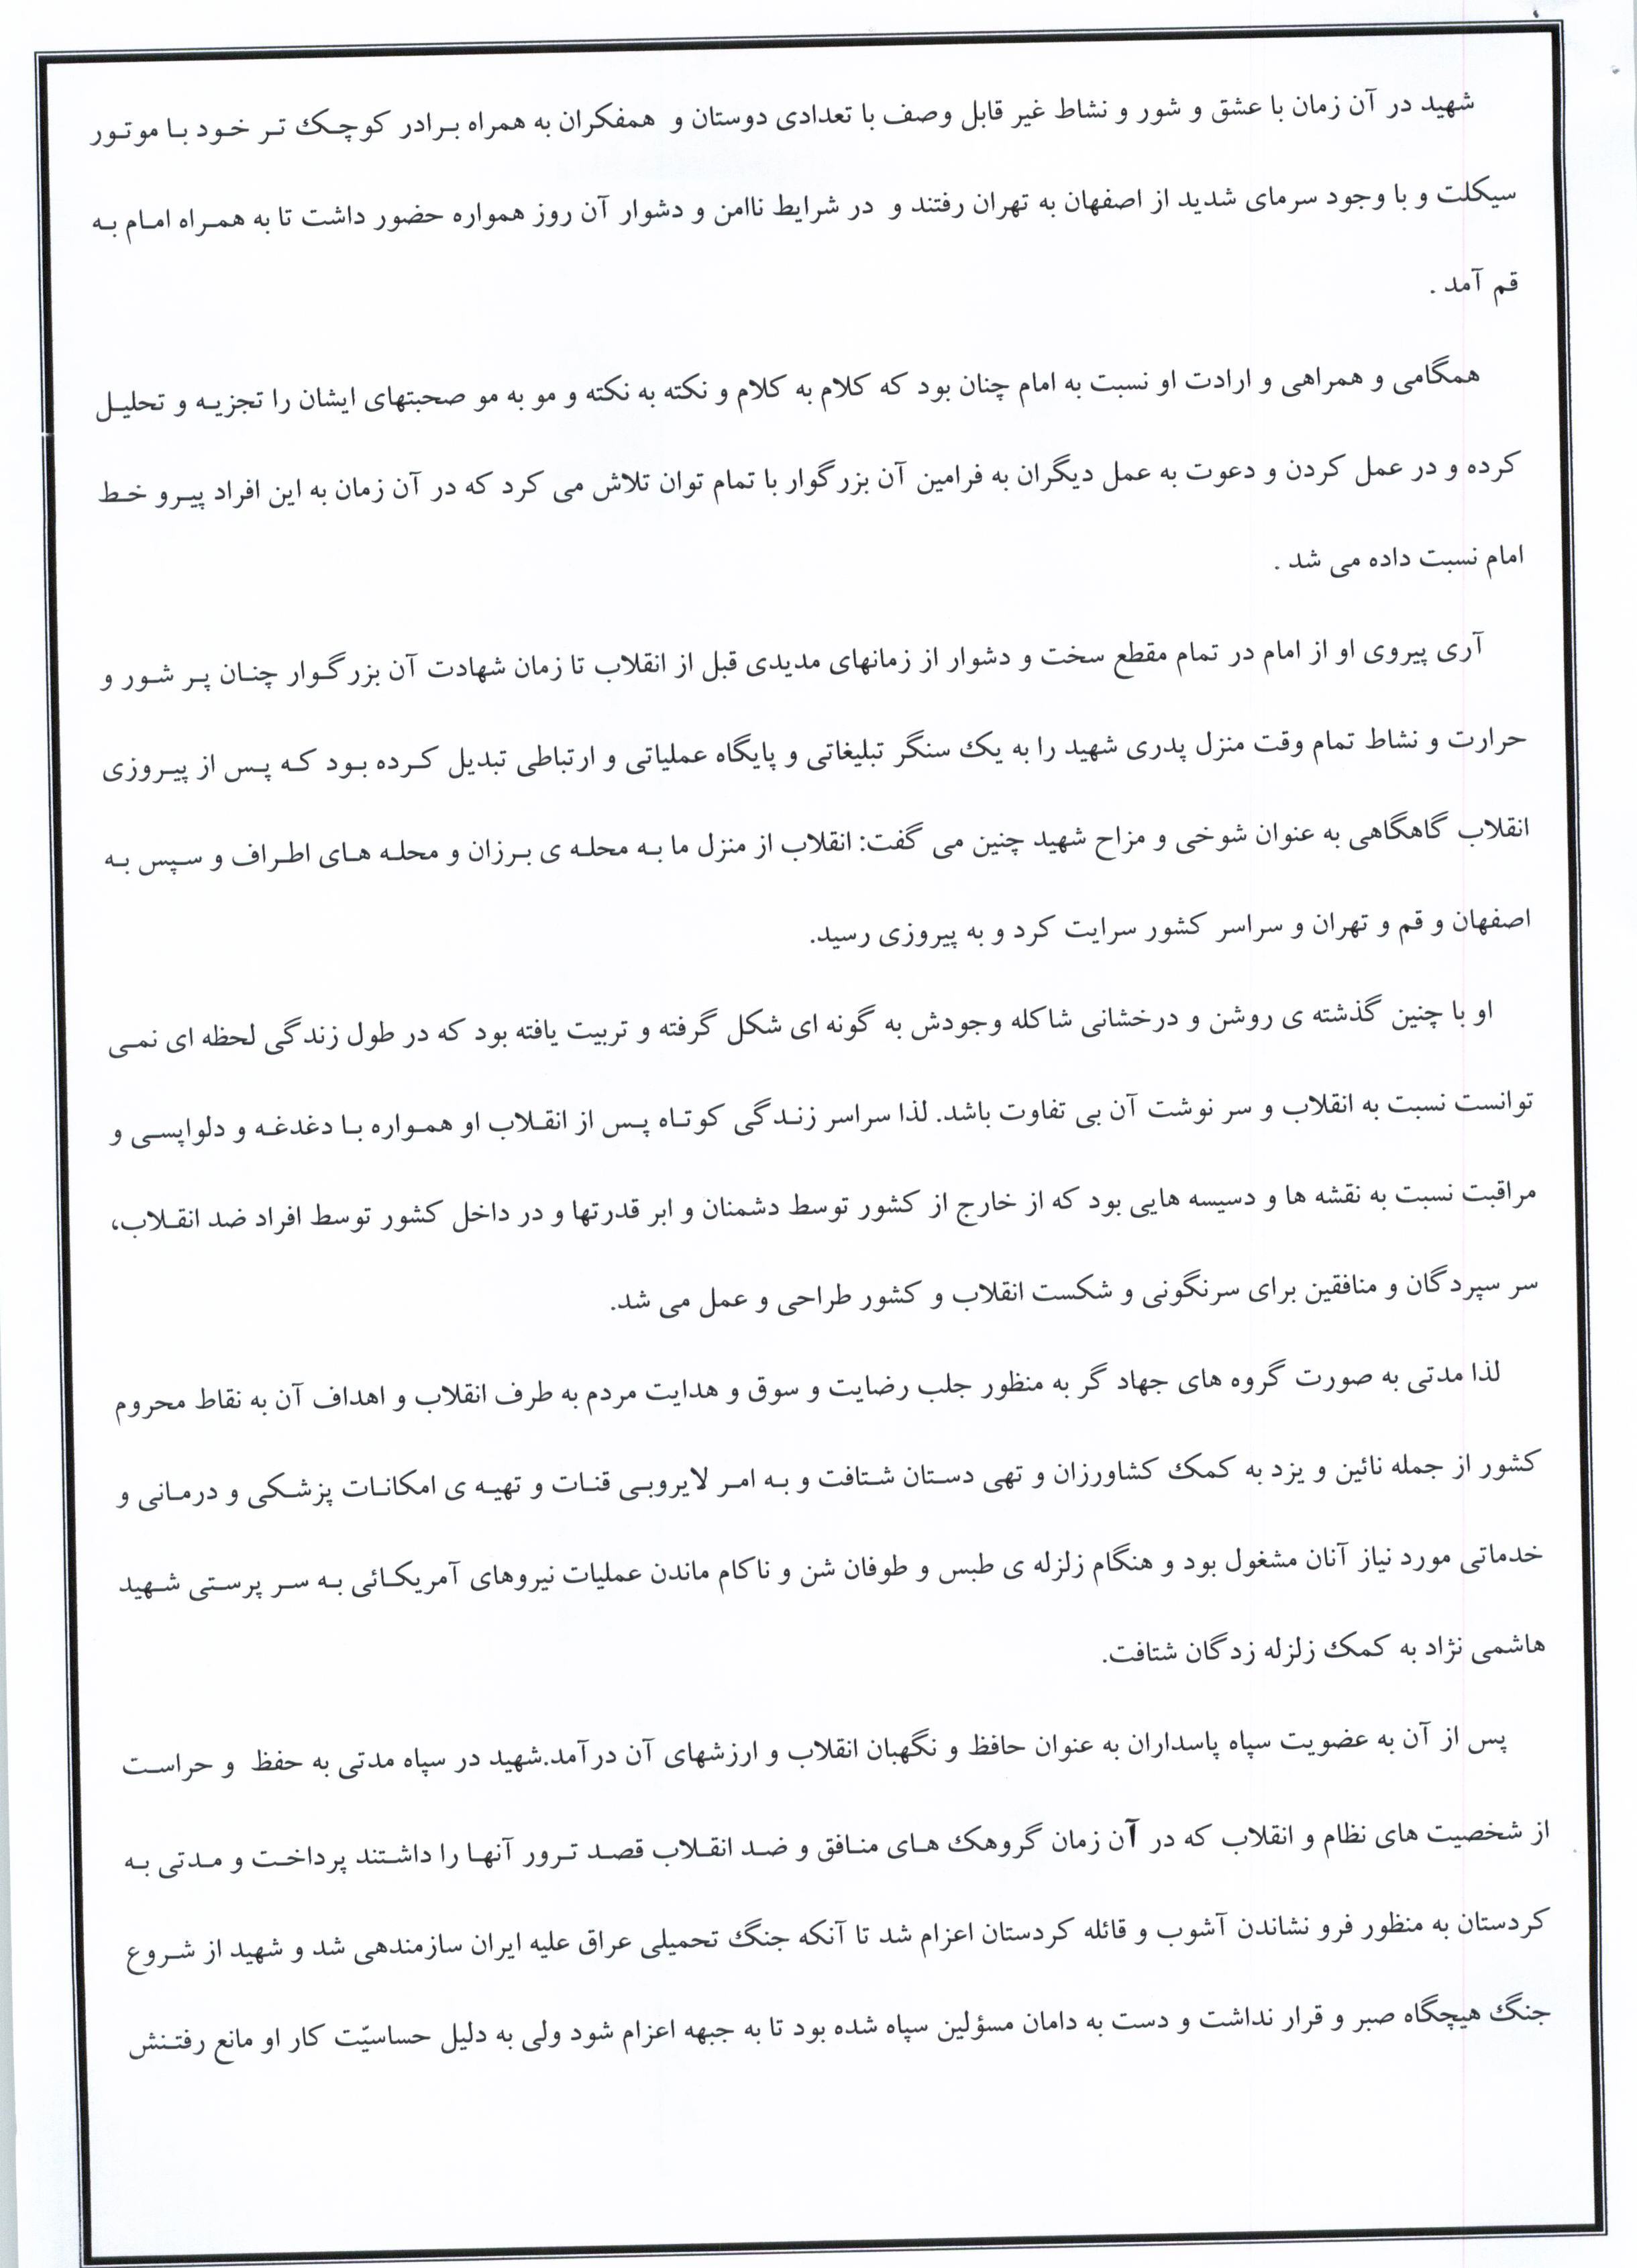 شهید در آن زمان با عشق و شور و نشاط غیر قابل وصف با تعدادی دوستان و همفکران به همراه برادر کوچک تر خود با موتور
سیکلت و با وجود سرمای شدید از اصفهان به تهران رفتند و در شرایط ناامن و دشوار آن روز همواره حضور داشت تا به همراه امام به
قم آمد .
همگامی و همراهی و ارادت او نسبت به امام چنان بود که کلام به کلام و نکته به نکته و مو به مو صحبتهای ایشان را تجزیه و تحلیل
کرده و در عمل کردن و دعوت به عمل دیگران به فرامین آن بزرگوار با تمام توان تلاش می کرد که در آن زمان به این افراد پیرو خط
امام نسبت داده می شد .
آری پیروی او از امام در تمام مقطع سخت و دشوار از زمانهای مدیدی قبل از انقلاب تا زمان شهادت آن بزرگوار چنان پر شور و
حرارت و نشاط تمام وقت منزل پدری شهید را به یک سنگر تبلیغاتی و پایگاه عملیاتی و ارتباطی تبدیل کرده بود که پس از پیروزی
انقلاب گاهگاهی به عنوان شوخی و مزاح شهید چنین می گفت: انقلاب از منزل ما به محله ی برزان و محله های اطراف و سپس به
اصفهان و قم و تهران و سراسر کشور سرایت کرد و به پیروزی رسید.
او با چنین گذشته ی روشن و درخشانی شاکله وجودش به گونه ای شکل گرفته و تربیت یافته بود که در طول زندگی لحظه ای نمی
توانست نسبت به انقلاب و سر نوشت آن بی تفاوت باشد. لذا سراسر زندگی کوتاه پس از انقلاب او همواره با دغدغه و دلواپسی و
مراقبت نسبت به نقشه ها و دسیسه هایی بود که از خارج از کشور توسط دشمنان و ابر قدرتها و در داخل کشور توسط افراد ضد انقلاب،
سر سپردگان و منافقین برای سرنگونی و شکست انقلاب و کشور طراحی و عمل می شد.
لذا مدتی به صورت گروه های جهاد گر به منظور جلب رضایت و سوق و هدایت مردم به طرف انقلاب و اهداف آن به نقاط محروم
کشور از جمله نائین و یزد به کمک کشاورزان و تهی دستان شتافت و به امر لایروبی قنات و تهیه ی امکانات پزشکی و درمانی و
خدماتی مورد نیاز آنان مشغول بود و هنگام زلزله ی طبس و طوفان شن و ناکام ماندن عملیات نیروهای آمریکائی به سر پرستی شهید
هاشمی نژاد به کمک زلزله زدگان شتافت.
پس از آن به عضویت سپاه پاسداران به عنوان حافظ و نگهبان انقلاب و ارزشهای آن درآمد.شهید در سپاه مدتی به حفظ و حراست
از شخصیت های نظام و انقلاب که در آن زمان گروهک های منافق و ضد انقلاب قصد ترور آنها را داشتند پرداخت و مدتی به
کردستان به منظور فرو نشاندن آشوب و قائله کردستان اعزام شد تا آنکه جنگ تحمیلی عراق علیه ایران سازمندهی شد و شهید از شروع
جنگ هیچگاه صبر و قرار نداشت و دست به دامان مسؤلین سپاه شده بود تا به جبهه اعزام شود ولی به دلیل حساسیّت کار او مانع رفتنش